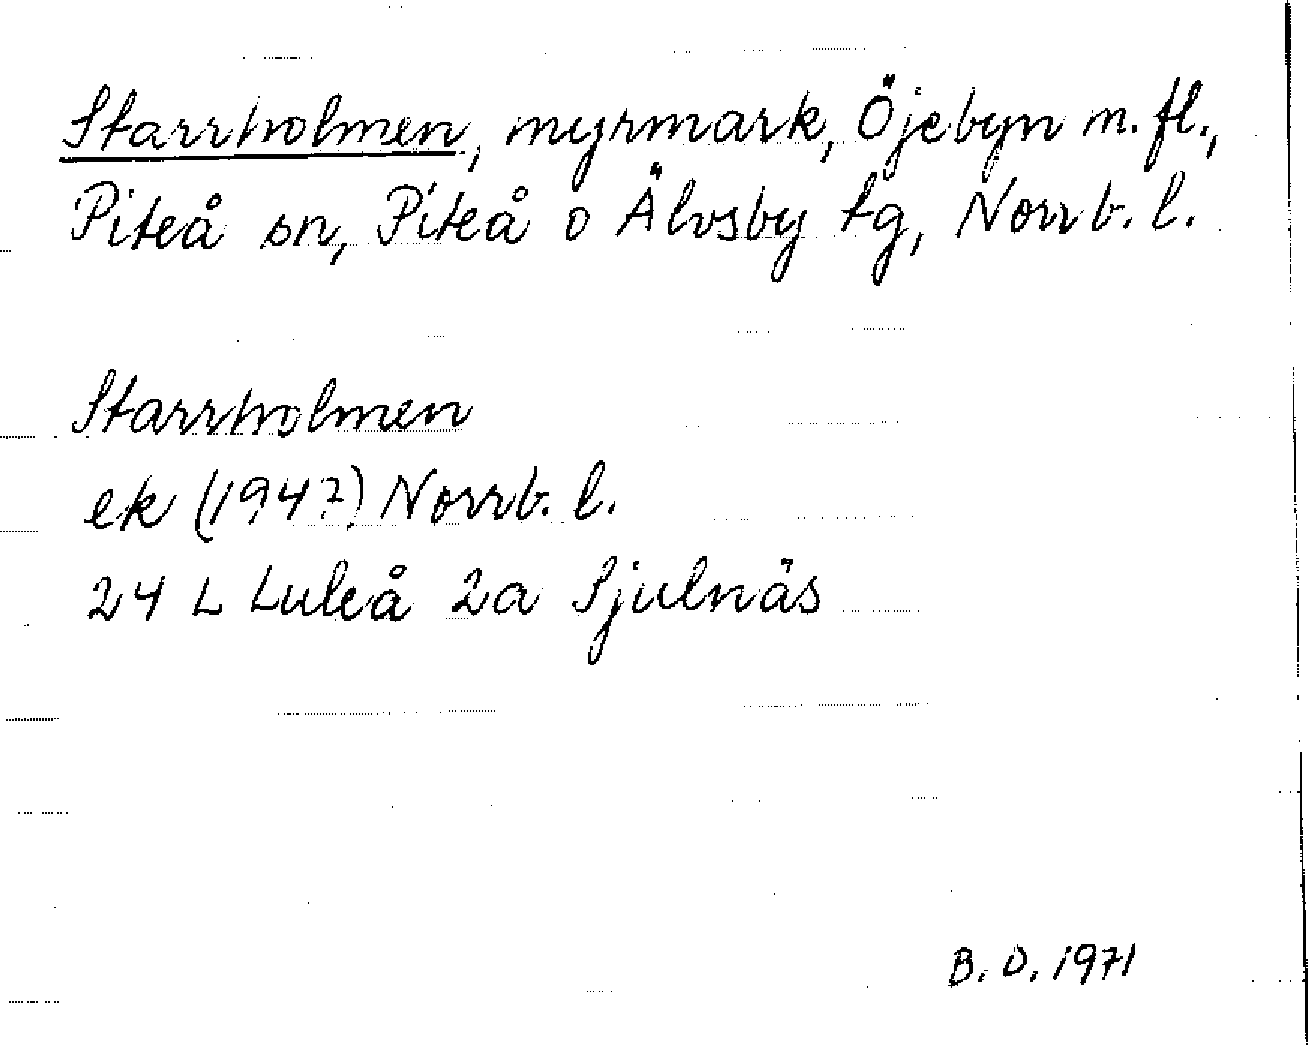 Starrholmen, myrmark, Öjebyn m. fl.,
Piteå sn, Piteå o Älvsby tg, Norrb. l.
Starrholmen
ek (1947) Norrb. l.
24 L Luleå 2a Sjulnäs
B. O. 1971